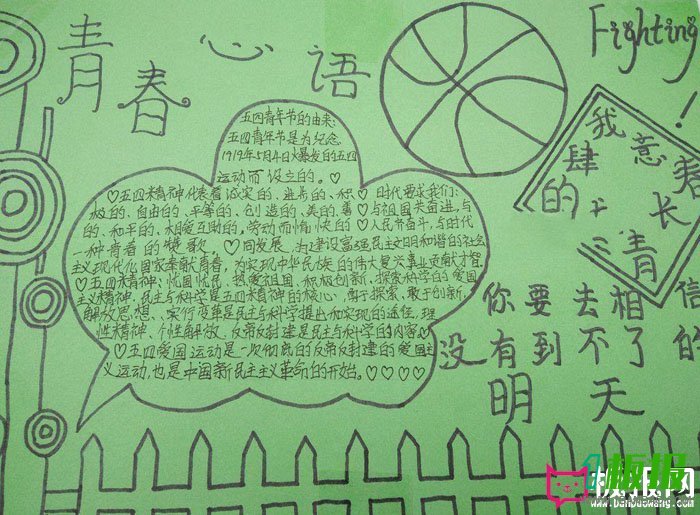 青春心语
Fighting!
五四青年节的由来:
五四青年节是为纪念
1919年5月4日爆发的五四
运动而设立的。
♡五四精神代表着诚实的、进步的、积
极的、自由的、平等的、创造的、美的、善
的、和平的、相爱互助的、劳动而愉快的
一种青春的赞歌。
♡时代要求我们:
与祖国共奋进,与
人民共奋斗,与时代
同发展,为建设富强民主文明和谐的社会
主义现代化国家奉献青春,为实现中华民族的伟大复兴事业贡献才智
♡五四精神:忧国忧民、热爱祖国、积极创新、探索科学的爱国
主义精神,民主与科学是五四精神的核心,勇于探索、敢于创新、
解放思想、实行变革是民主与科学提出和实现的途径,理
性精神、个性解放、反帝反封建是民主与科学的内容
♡五四爱国运动是一次彻底的反帝反封建的爱国主
义运动,也是中国新民主主义革命的开始。♡♡♡♡
我
肆意
的
长
青
你要去相信
没有到不了的
明天
板报网
www.banbaowang.com